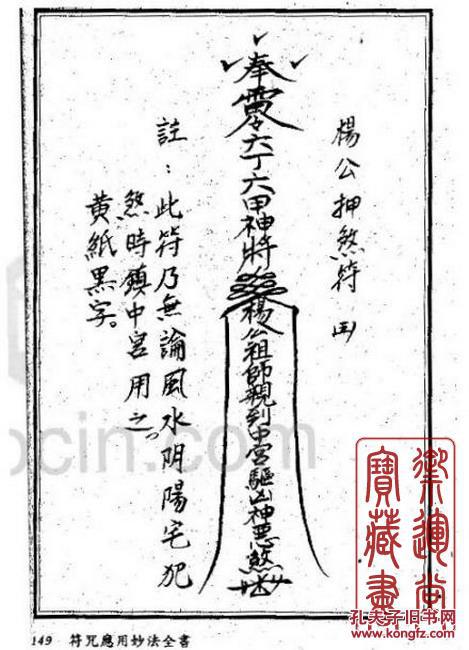 楊公押煞符
奉
六丁六甲神將
楊公祖師親到中宮驅凶神惡煞
註：此符乃無論風水阴陽宅犯
煞時鎮中宮用之。
黄紙黑字。
149 符咒應用妙法全書
寶藏書
孔夫子旧书网
www.kongfz.com
ocin.com